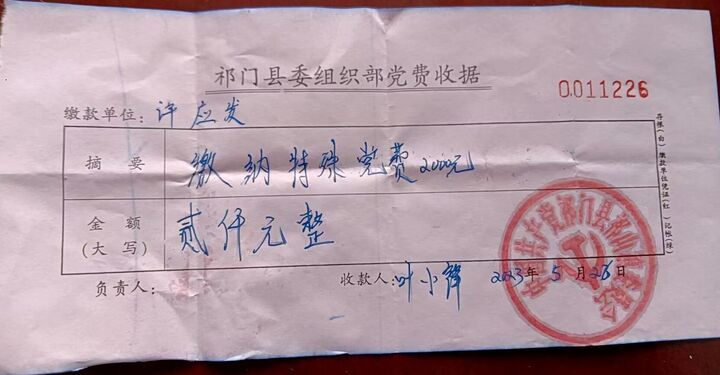 祁门县委组织部党费收据
0011226
缴款单位：许应发
摘要 缴纳特殊党费2000元
金额（大写） 贰仟元整
负责人： 收款人：叶小萍 2023年5月26日
存根（白） 缴款单位凭证（红） 记帐（绿）